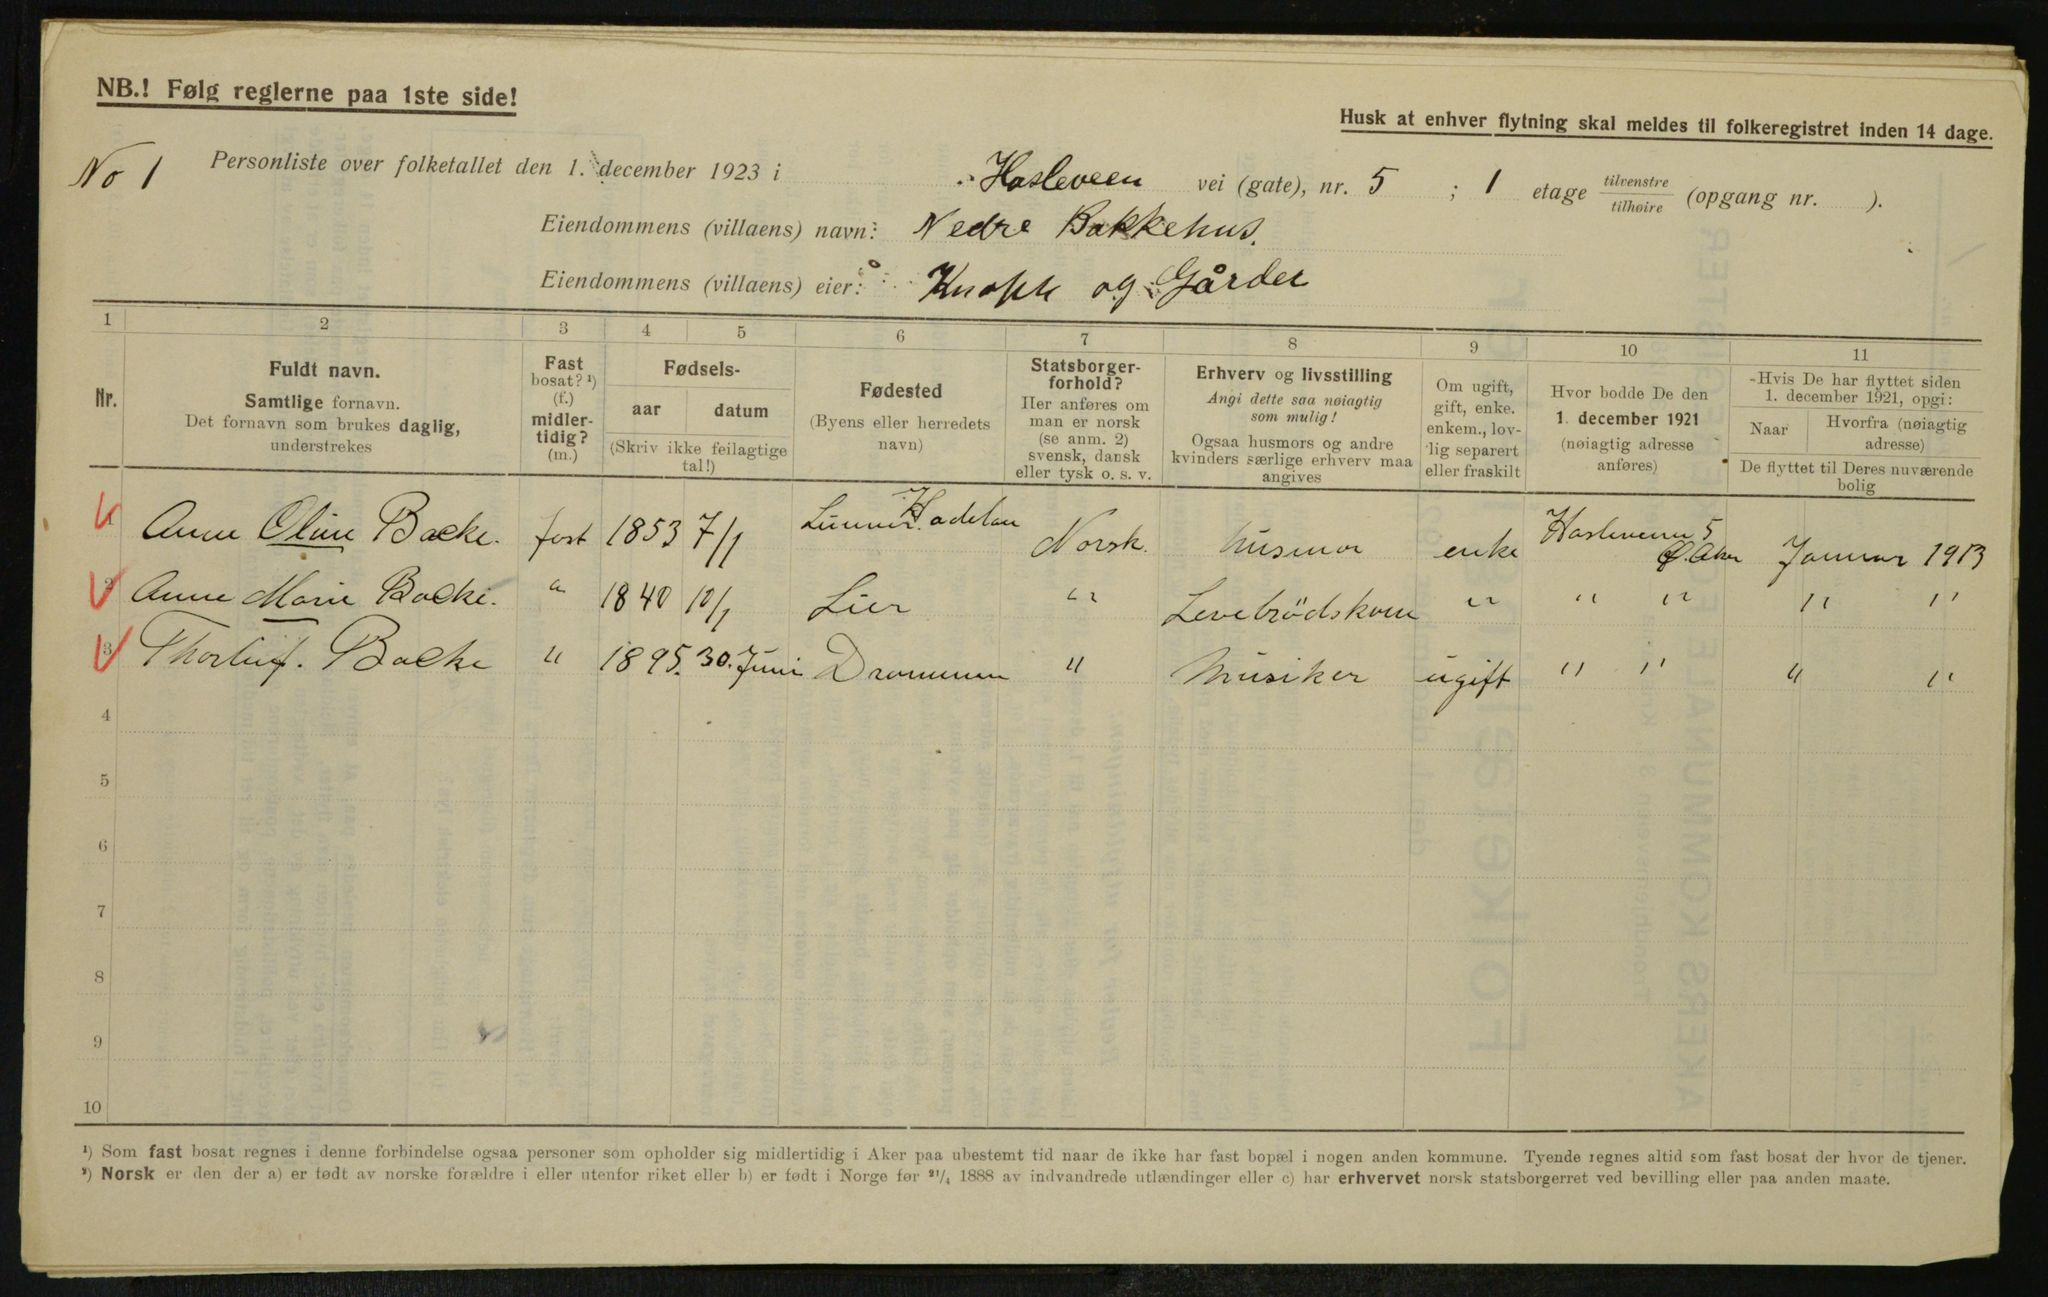 NB.! Følg reglerne paa 1ste side!
Husk at enhver flytning skal meldes til folkeregistret inden 14 dage.
No 1
Personliste over folketallet den 1. december 1923 i Hasleveen vei (gate), nr. 5 ; 1 etage tilvenstre/tilhøire (opgang nr. ).
Eiendommens (villaens) navn: Nedre Bakkehus.
Eiendommens (villaens) eier: Knoph og Gårder
1 2 3 4 5 6 7 8 9 10 11
Nr.
Fuldt navn.
Samtlige fornavn.
Det fornavn som brukes daglig,
understrekes
Fast
bosat? ¹)
(f.)
midler-
tidig?
(m.)
Fødsels-
aar datum
(Skriv ikke feilagtige
tal!)
Fødested
(Byens eller herredets
navn)
Statsborger-
forhold?
Her anføres om
man er norsk
(se anm. 2)
svensk, dansk
eller tysk o. s. v.
Erhverv og livsstilling
Angi dette saa nøiagtig
som mulig!
Ogsaa husmors og andre
kvinders særlige erhverv maa
angives
Om ugift,
gift, enke.
enkem., lov-
lig separert
eller fraskilt
Hvor bodde De den
1. december 1921
(nøiagtig adresse
anføres)
Hvis De har flyttet siden
1. december 1921, opgi:
Naar
Hvorfra (nøiagtig
adresse)
De flyttet til Deres nuværende
bolig
1 Anne Oline Backe. fast 1853 7/1 Lunner. Hadelan Norsk. husmor enke Hasleveien 5 Ø. Aker Januar 1913
2 Anne Marie Backe. " 1840 10/1 Lier " Levebrödskone " " " " "
3 Thorleif. Backe " 1895. 30. Juni Drammen " Musiker ugift " " " "
4
5
6
7
8
9
10
¹) Som fast bosat regnes i denne forbindelse ogsaa personer som opholder sig midlertidig i Aker paa ubestemt tid naar de ikke har fast bopæl i nogen anden kommune. Tyende regnes altid som fast bosat der hvor de tjener.
²) Norsk er den der a) er født av norske forældre i eller utenfor riket eller b) er født i Norge før ²¹/₄ 1888 av indvandrede utlændinger eller c) har erhvervet norsk statsborgerret ved bevilling eller paa anden maate.